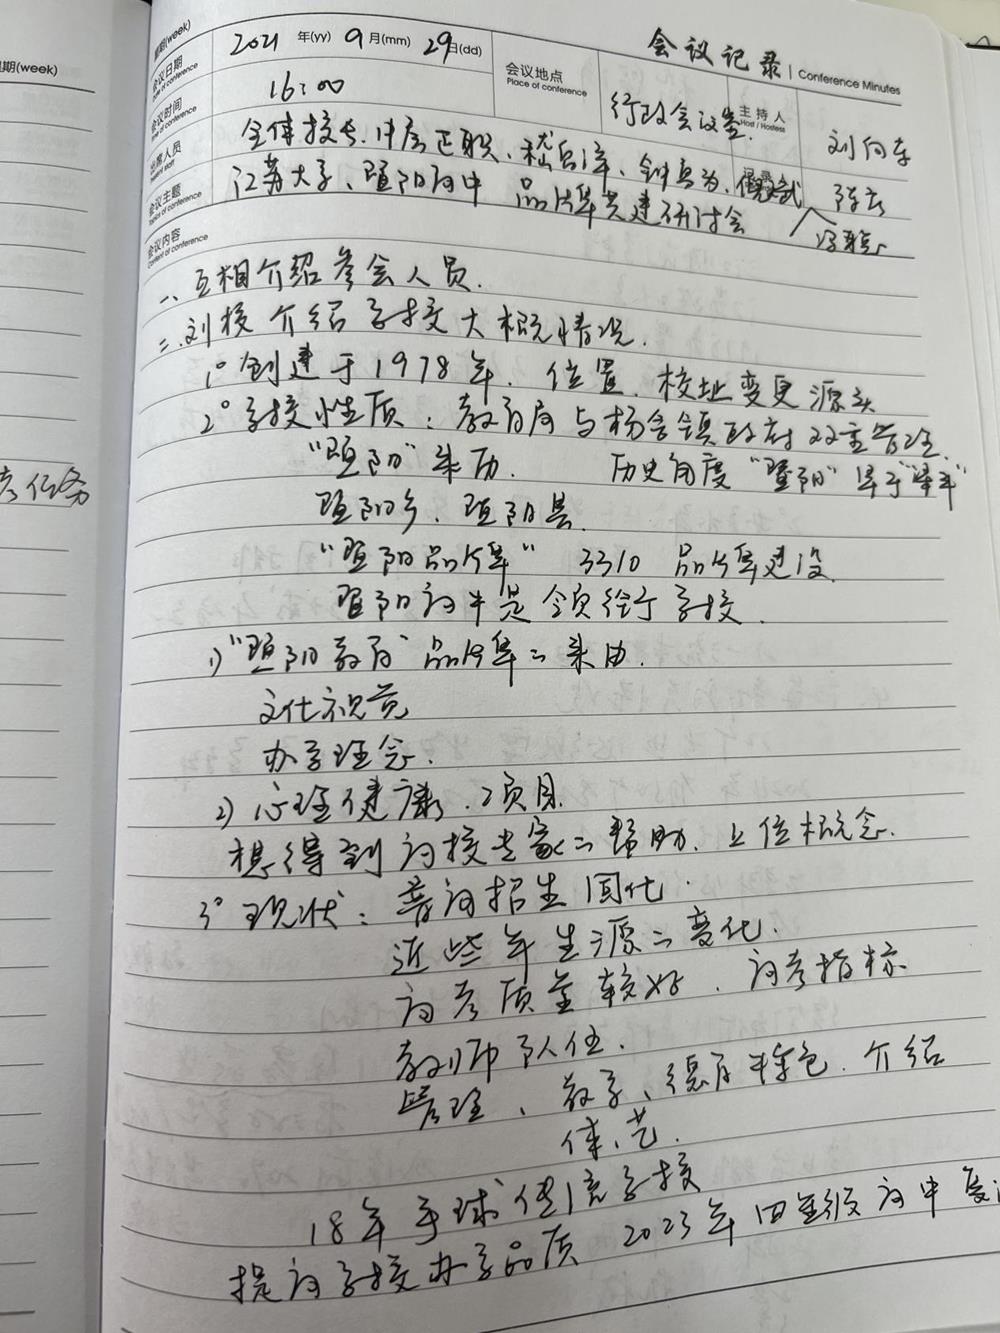 会议记录 | Conference Minutes
星期(week)
期(week)
会议日期 Date of conference 2021 年(yy) 9 月(mm) 29 日(dd)
会议地点 Place of conference 行政会议室.
主持人 Host / Hostess 刘向东
会议时间 16:00
全体校长、中层正职、
会议主题 Topics of conference 江苏大学、暨阳高中 品牌共建研讨会
会议内容 Content of conference
一、互相介绍参会人员.
二、刘校介绍学校大概情况.
1° 创建于1978年. 位置. 校址变更源头
2° 学校性质: 教育局与杨舍镇政府双重管理.
“暨阳”来历. 历史角度“暨阳”早于
暨阳乡、暨阳县.
“暨阳品牌” 3310 品牌建设.
暨阳高中是领衔学校.
1) “暨阳教育”品牌之来由.
文化视觉
办学理念.
2) 心理健康、项目.
想得到高校专家之帮助. 上位概念.
3° 现状: 普高招生固化.
近些年生源之变化.
高考质量较好. 高考指标
教师队伍.
管理、教学、德育特色. 介绍
体、艺.
18年手球传统学校
提高学校办学品质 2023年四星级高中复
务任务